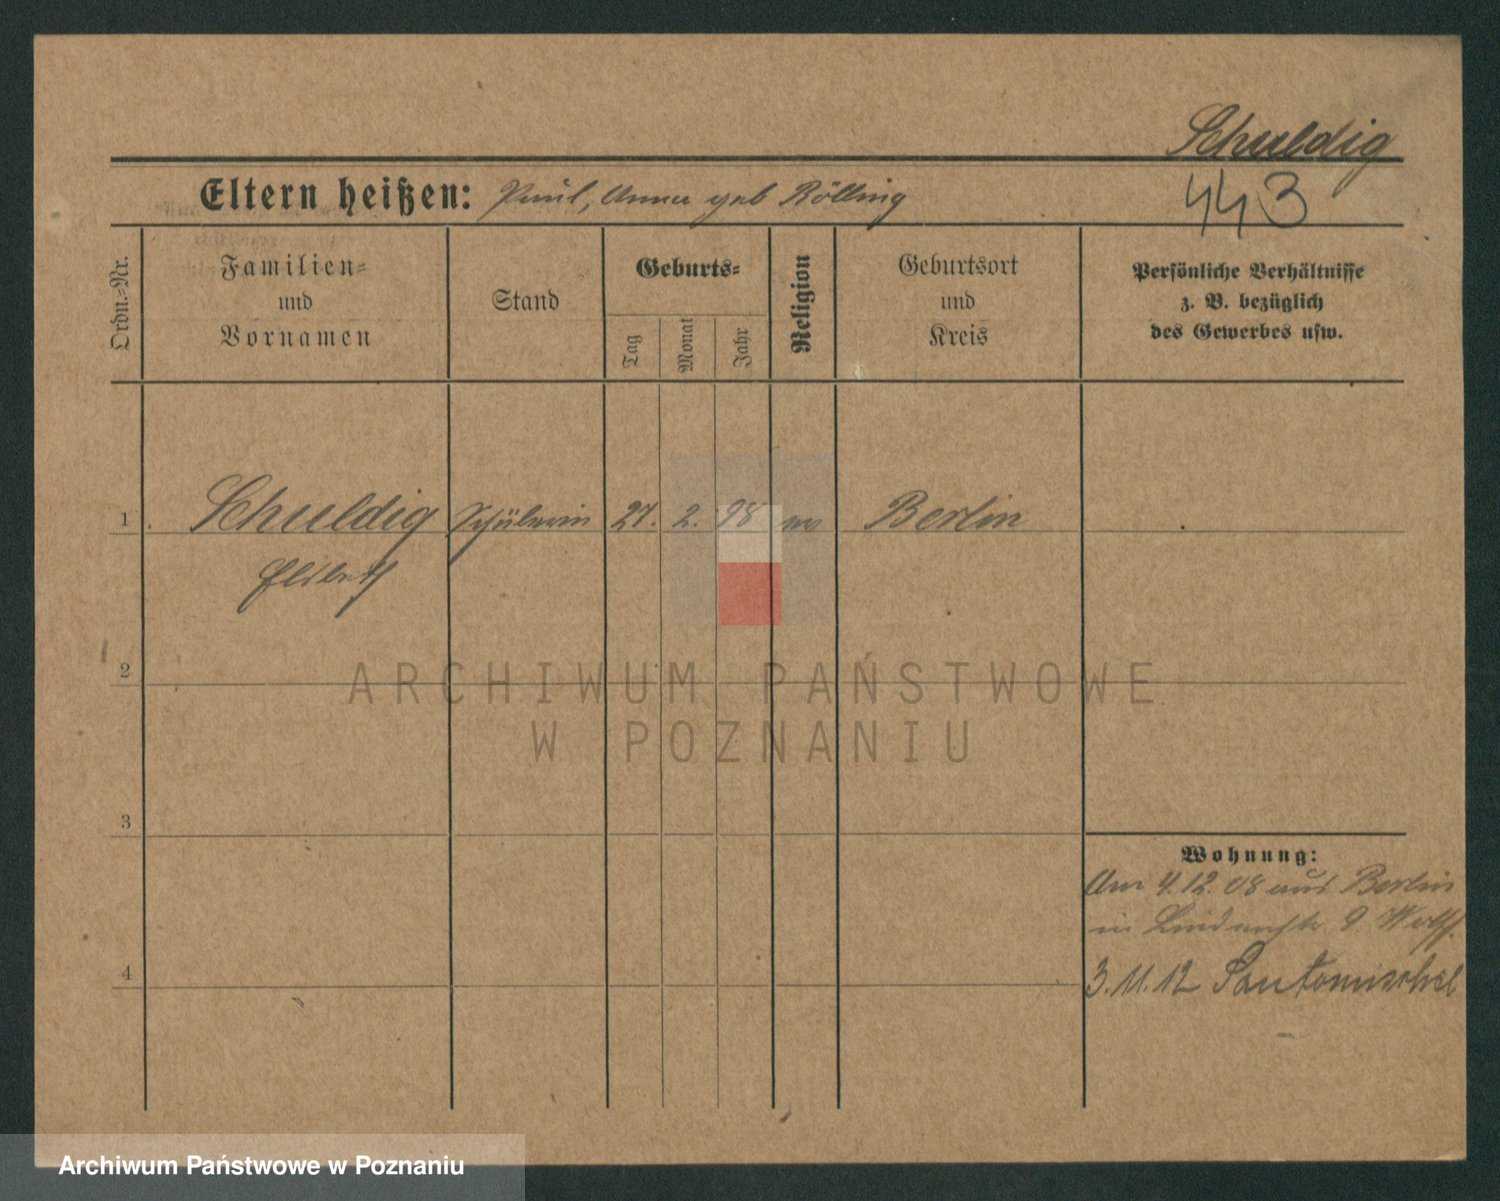 Schuldig
Eltern heißen: Paul, Anna geb Rölling
443
Ordn.-Nr.
Familien-
und
Vornamen
Stand
Geburts-
Tag
Monat
Jahr
Religion
Geburtsort
und
Kreis
Persönliche Verhältnisse
z. B. bezüglich
des Gewerbes usw.
1 Schuldig Schülerin 27. 2. 98 ev Berlin
2
ARCHIWUM PAŃSTWOWE
W POZNANIU
3
Wohnung:
Am 4.12.08 aus Berlin
in Lindenstr 9
4
3.11.12 Santomischel
Archiwum Państwowe w Poznaniu